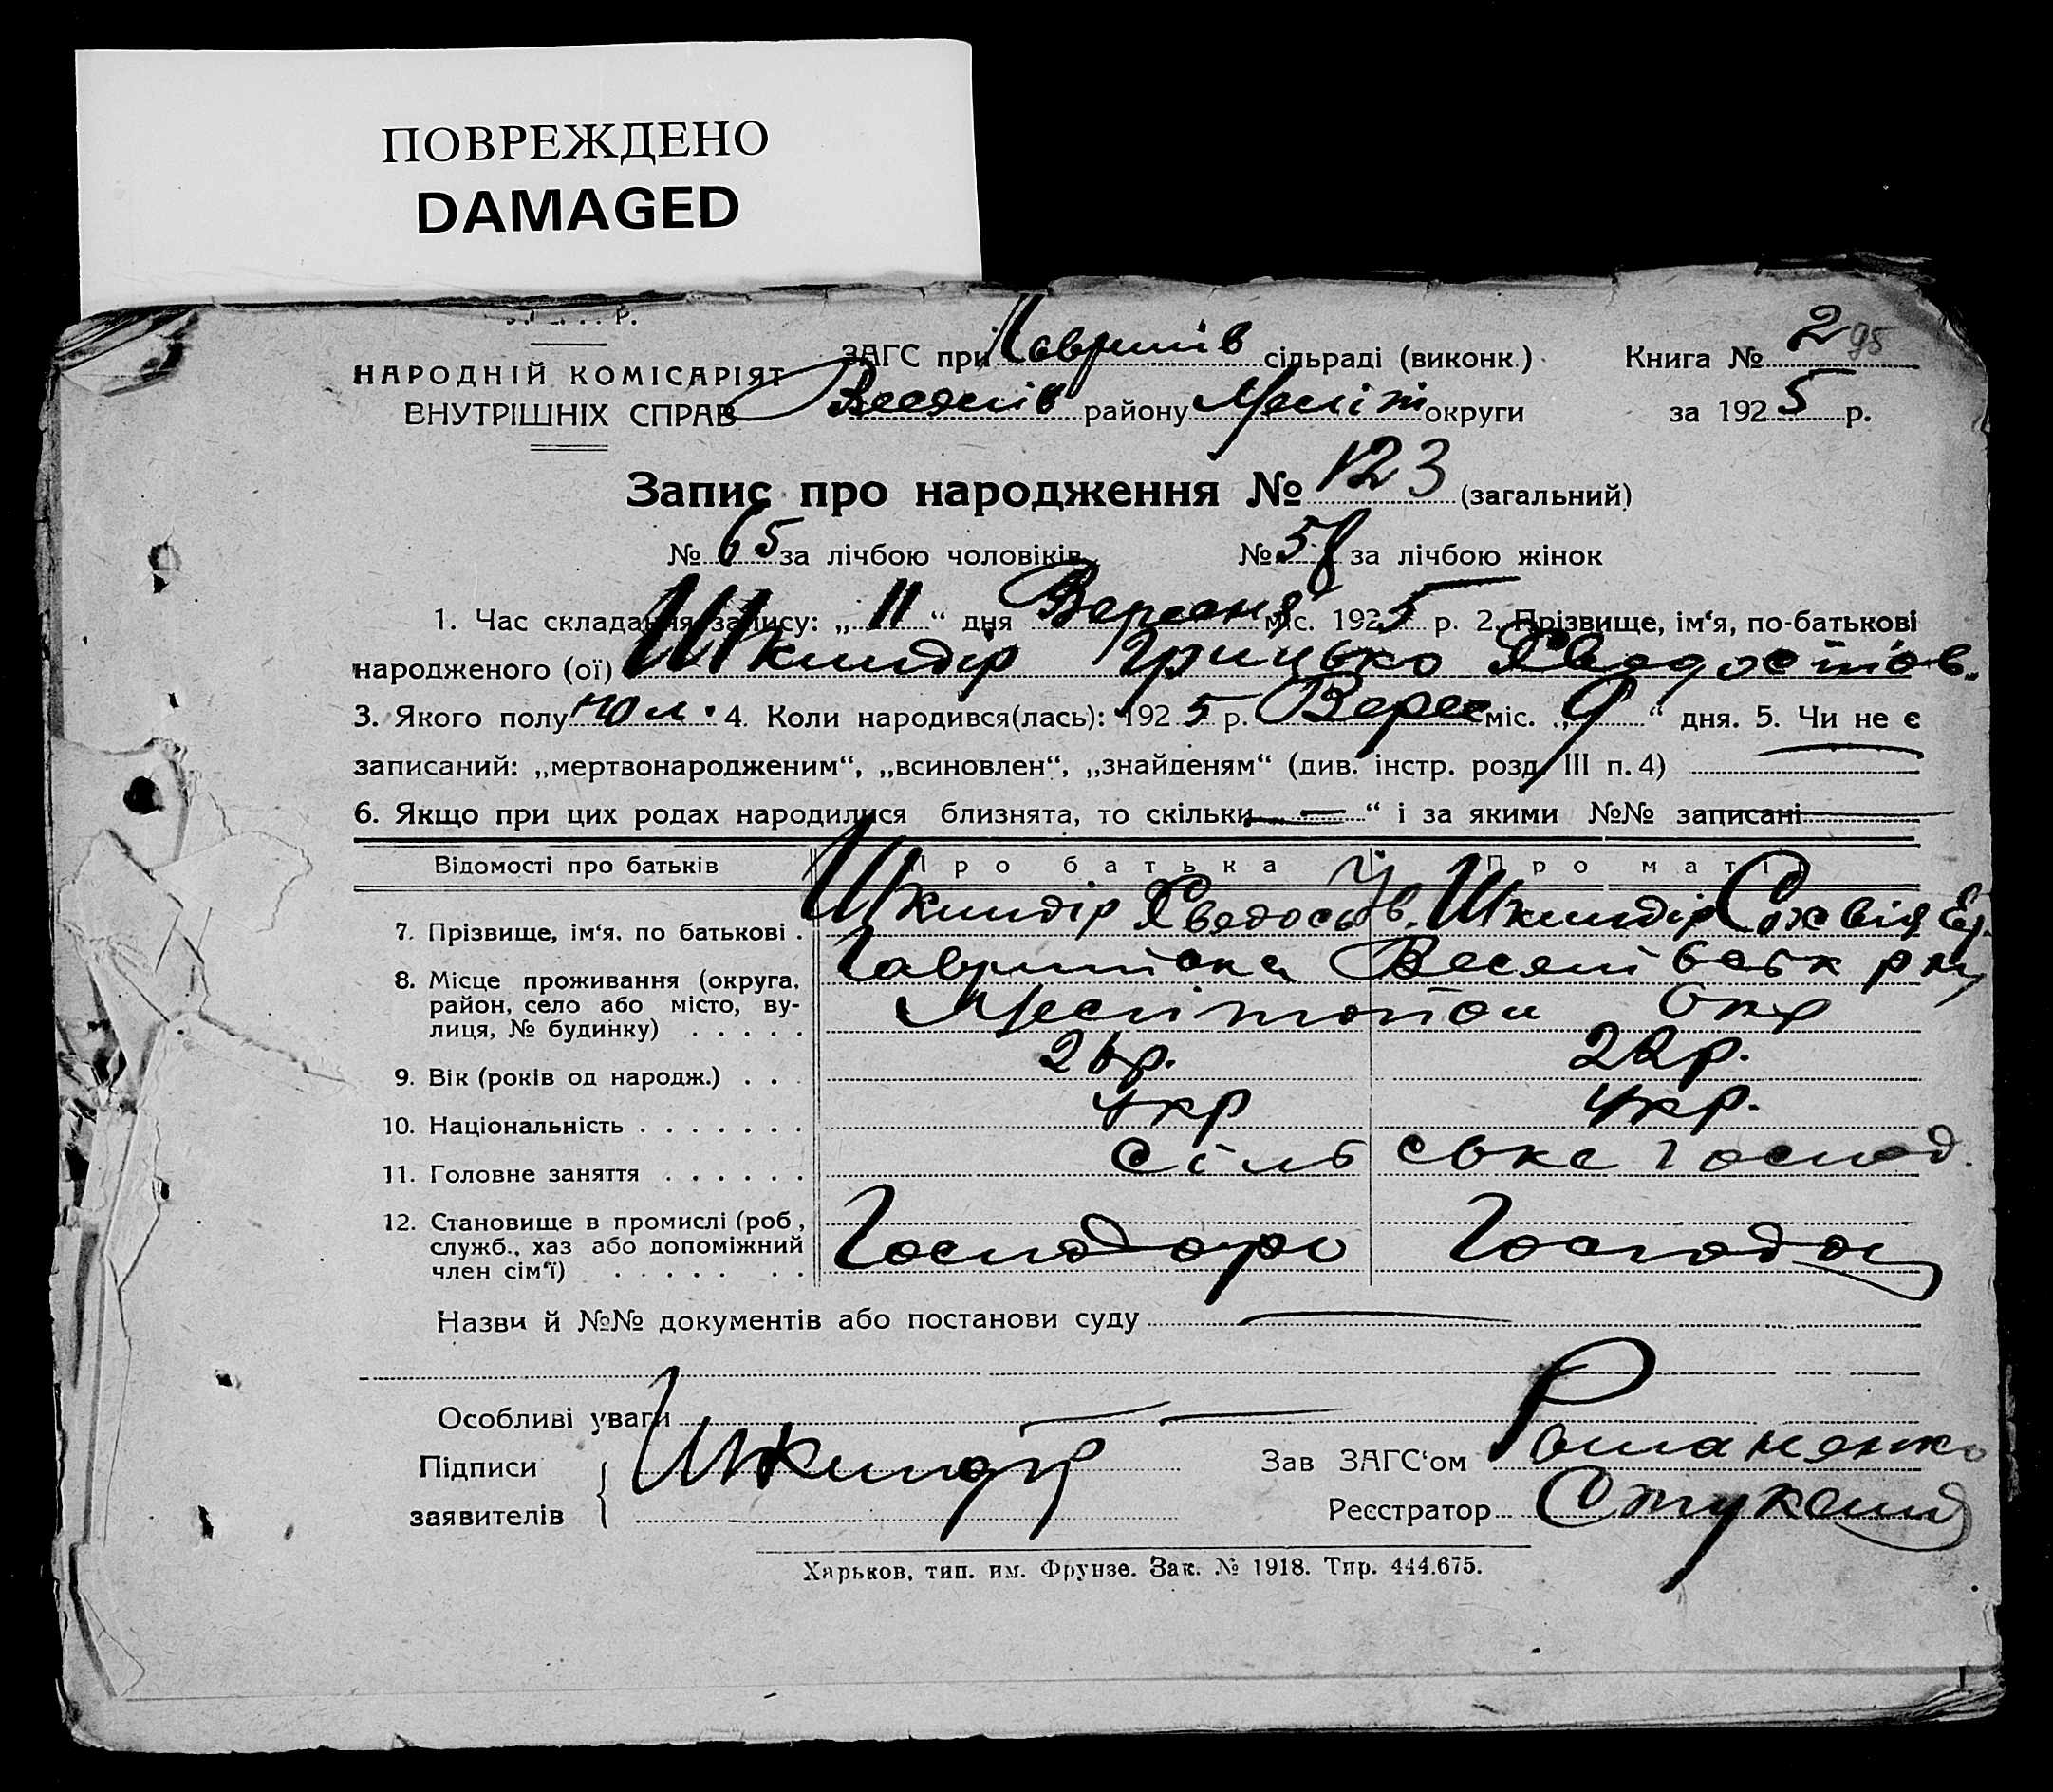 ПОВРЕЖДЕНО
DAMAGED
ЗАГС при Гавришів сільраді (виконк.) Книга № 2 95
НАРОДНІЙ КОМІСАРІЯТ
ВНУТРІШНІХ СПРАВ
Веселів району Меліт округи за 1925 р.
Запис про народження № 123 (загальний)
№ 65 за лічбою чоловіків № 58 за лічбою жінок
1. Час складання запису: „11“ дня Вересня міс. 1925 р. 2. Прізвище, ім‘я, по-батькові
народженого (ої) Шкиндір Грицько Хведостов.
3. Якого полу 4. Коли народився(лась): 1925 р. Верес міс. „9“ дня. 5. Чи не є
записаний: „мертвонародженим“, „всиновлен“, „знайденям“ (див. інстр. розд. III п. 4)
6. Якщо при цих родах народилися близнята, то скільки „—“ і за якими №№ записані
Відомості про батьків Про батька Про матір
7. Прізвище, ім‘я, по батькові . Шкиндір Хведось Шкиндір
8. Місце проживання (округа, район, село або місто, вулиця, № будинку) . . . . .
Мелітопол Окр
9. Вік (років од народж.) . . . 26р. 22р.
10. Національність . . . . . . . Укр Укр.
11. Головне заняття . . . . . . Сільське господ.
12. Становище в промислі (роб., служб., хаз або допоміжний член сім‘ї) . . . . . . . Господарь
Назви й №№ документів або постанови суду
Особливі уваги
Підписи заявителів Шкиндір
Зав ЗАГС‘ом Романенко
Реєстратор
Харьков, тип. им. Фрунзе. Зак. № 1918. Тир. 444.675.